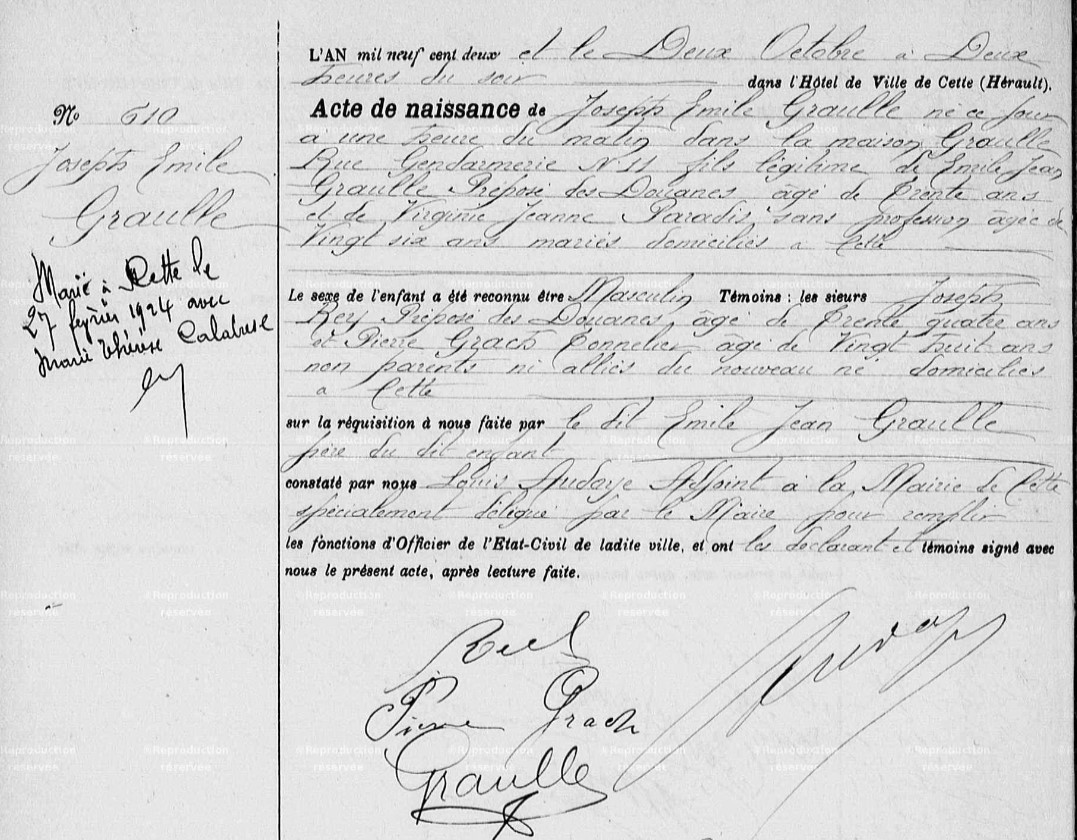 L'AN mil neuf cent deux et le Deux Octobre à Deux
heures du soir dans l'Hôtel de Ville de Cette (Hérault).
Acte de naissance de Joseph Emile Graulle né ce jour
à une heure du matin dans la maison Graulle
Rue Gendarmerie N 11 fils légitime de Emile Jean
Graulle Préposé des Douanes âgé de Trente ans
et de Virginie Jeanne Paradis sans profession âgée de
Vingt six ans mariés domiciliés à Cette
Le sexe de l'enfant a été reconnu être Masculin Témoins : les sieurs Joseph
Rey Préposé des Douanes, âgé de Trente quatre ans
et Pierre Grach Tonnelier âgé de Vingt huit ans
non parents ni alliés du nouveau né domiciliés
à Cette
sur la réquisition à nous faite par le dit Emile Jean Graulle
père du dit enfant
constaté par nous Louis Audoye Adjoint à la Mairie de Cette
spécialement délégué par le Maire pour remplir
les fonctions d'Officier de l'Etat-Civil de ladite ville, et ont les déclarant et témoins signé avec
nous le présent acte, après lecture faite.
Pierre Grach
Graulle
No 610
Joseph Emile
Graulle
Marié à Cette le
27 février 1924 avec
Marie Thérèse Calabrese
©Reproduction
réservée